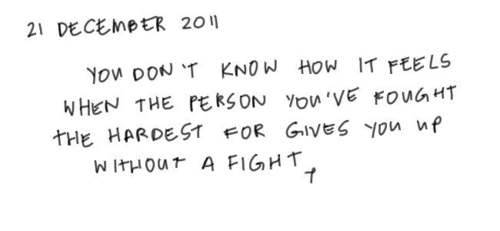 21 DECEMBER 2011
YOU DON'T KNOW HOW IT FEELS
WHEN THE PERSON YOU'VE FOUGHT
THE HARDEST FOR GIVES YOU UP
WITHOUT A FIGHT,